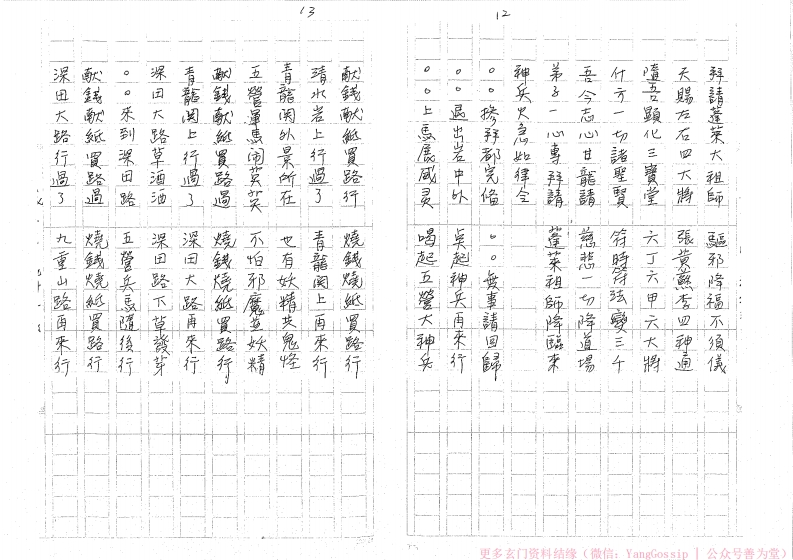 12
拜請蓬萊大祖師 驅邪降福不須儀
天賜左右四大將 張黃蘇李四神通
隨吾顕化三寶堂 六丁六甲六大將
什方一切諸聖賢 符時符法變三千
吾今志心甘龍請 慈悲一切降道場
弟子一心專拜請 蓬萊祖師降臨來
神兵火急如律令
○○摻拜都完俻 ○○無事請回歸
○○退出岩中外 吳起神兵再來行
○○上馬展威灵 喝起五營大神兵
13
献錢献紙買路行 燒錢燒紙買路行
清水岩上行過了 青龍関上再來行
青龍関外景所在 也有妖精共鬼怪
五營軍馬鬧英笑 不怕邪魔並妖精
献錢献紙買路過 燒錢燒紙買路行
青龍関上行過了 深田大路再來行
深田大路草酒酒 深田路下草發芽
○○來到深田路 五營兵馬隨後行
献錢献紙買路過 燒錢燒紙買路行
深田大路行過了 九重山路再來行
更多玄门资料结缘（微信：YangGossip | 公众号善为堂）